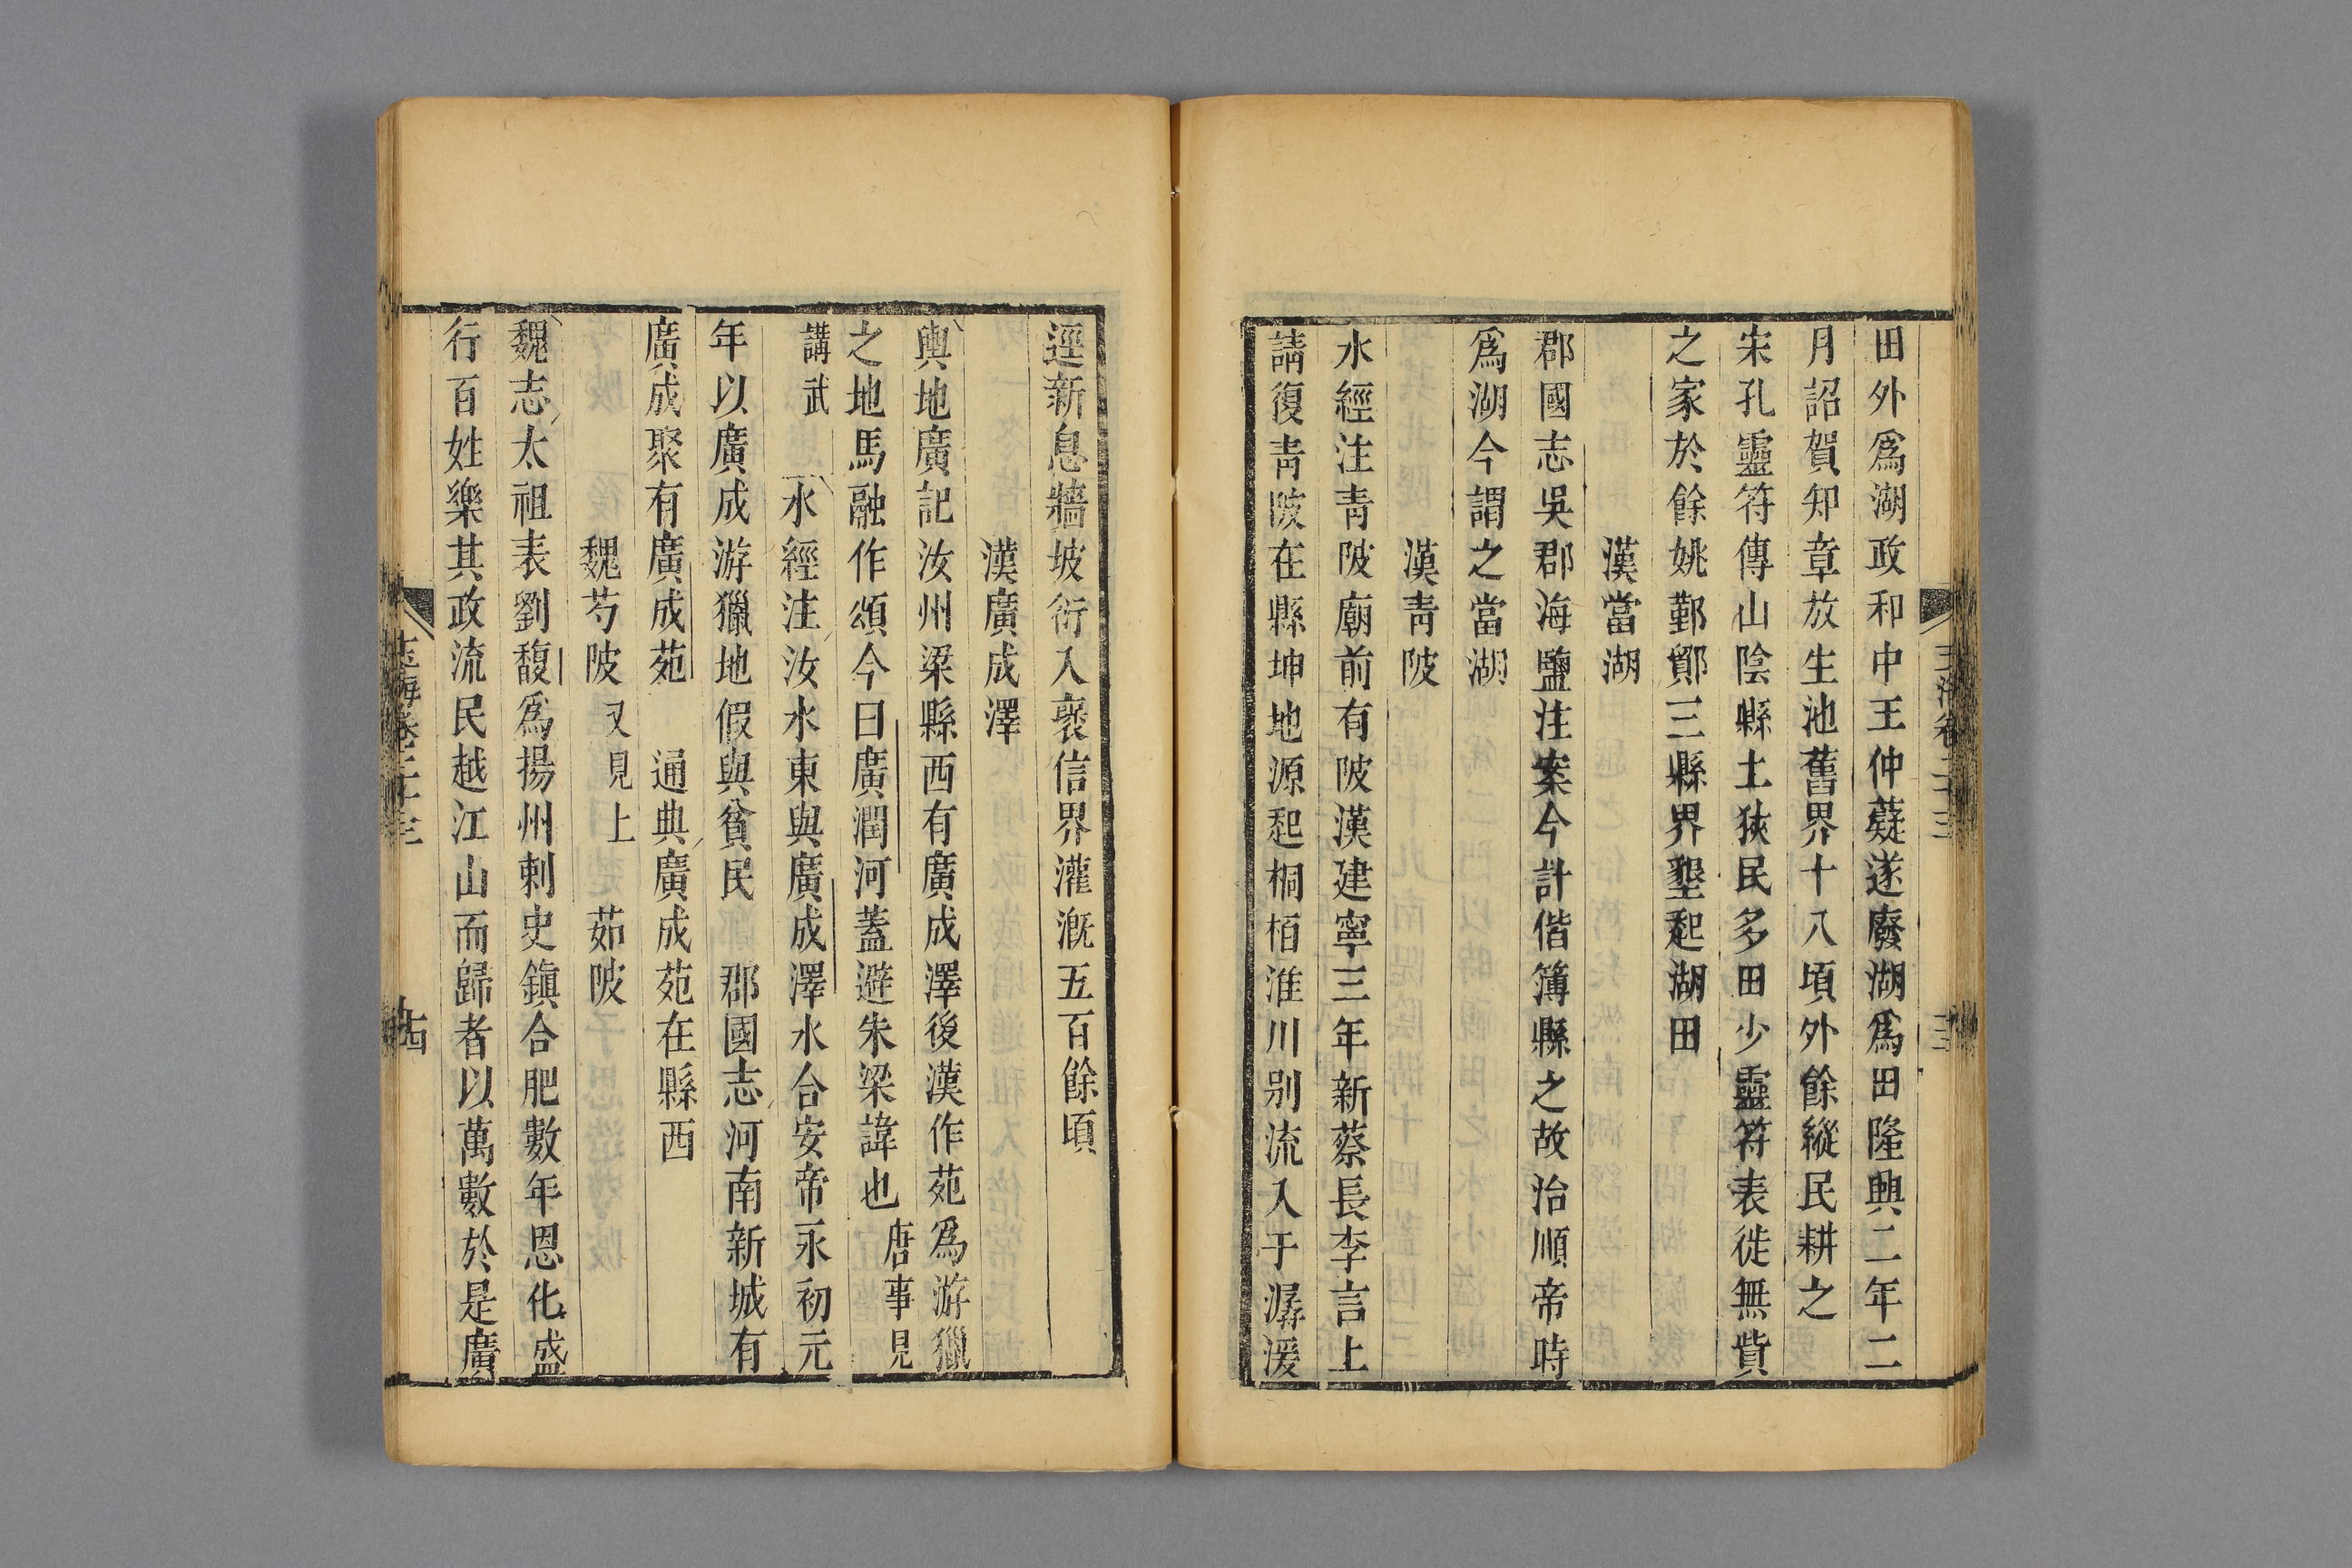 田外爲湖政和中王仲薿遂廢湖爲田隆興二年二
月詔賀知章放生池舊界十八頃外餘縱民耕之
宋孔靈符傳山陰縣土狹民多田少靈符表徙無貲
之家於餘姚鄞鄮三縣界墾起湖田
漢當湖
郡國志吳郡海鹽注案今計偕簿縣之故治順帝時
爲湖今謂之當湖
漢青陂
水經注青陂廟前有陂漢建寧三年新蔡長李言上
請復青陂在縣坤地源起桐栢淮川别流入于潺湲
逕新息牆坡衍入襃信界灌溉五百餘頃
漢廣成澤
輿地廣記汝州梁縣西有廣成澤後漢作苑爲游獵
之地馬融作頌今曰廣潤河蓋避朱梁諱也唐事見
講武 水經注汝水東與廣成澤水合安帝永初元
年以廣成游獵地假與貧民 郡國志河南新城有
廣成聚有廣成苑 通典廣成苑在縣西
魏芍陂又見上 茹陂
魏志太祖表劉馥爲揚州刺史鎮合肥數年恩化盛
行百姓樂其政流民越江山而歸者以萬數於是廣
玉海卷二十三
十四